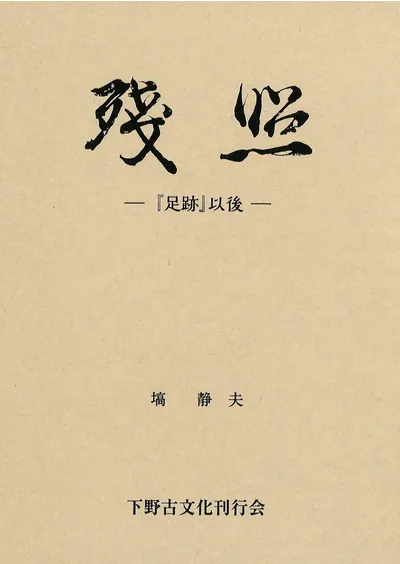 殘照
―『足跡』以後―
塙静夫
下野古文化刊行会